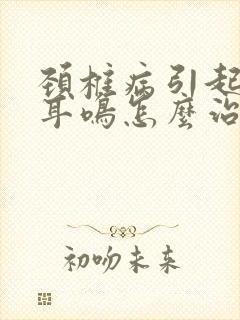 颈椎病引起
耳鸣怎麼治
初吻未来